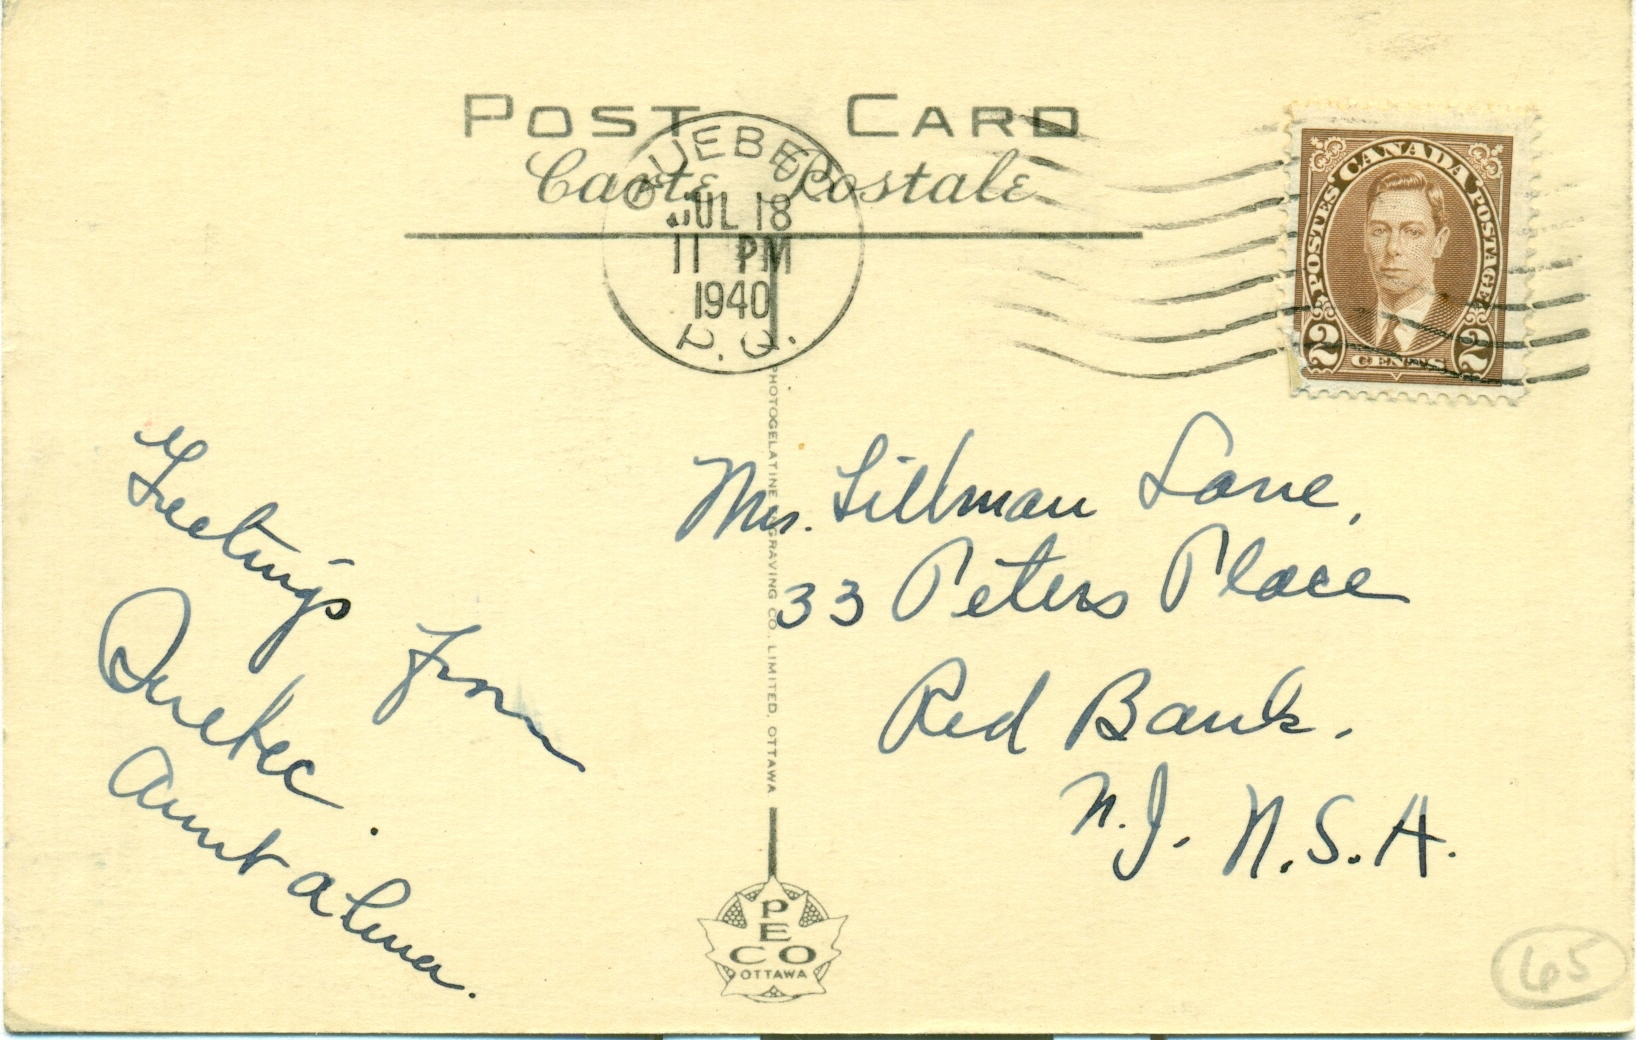 POST CARD
Carte Postale
QUEBEC
JUL 18
11 PM
1940
P.Q.
CANADA
POSTES POSTAGE
2 CENTS 2
Greetings from
Quebec.
Aunt Alma.
Mrs. Tillman Lane,
33 Peters Place
Red Bank.
N.J. U.S.A.
PHOTOGELATINE ENGRAVING CO. LIMITED, OTTAWA
PECO
OTTAWA
65